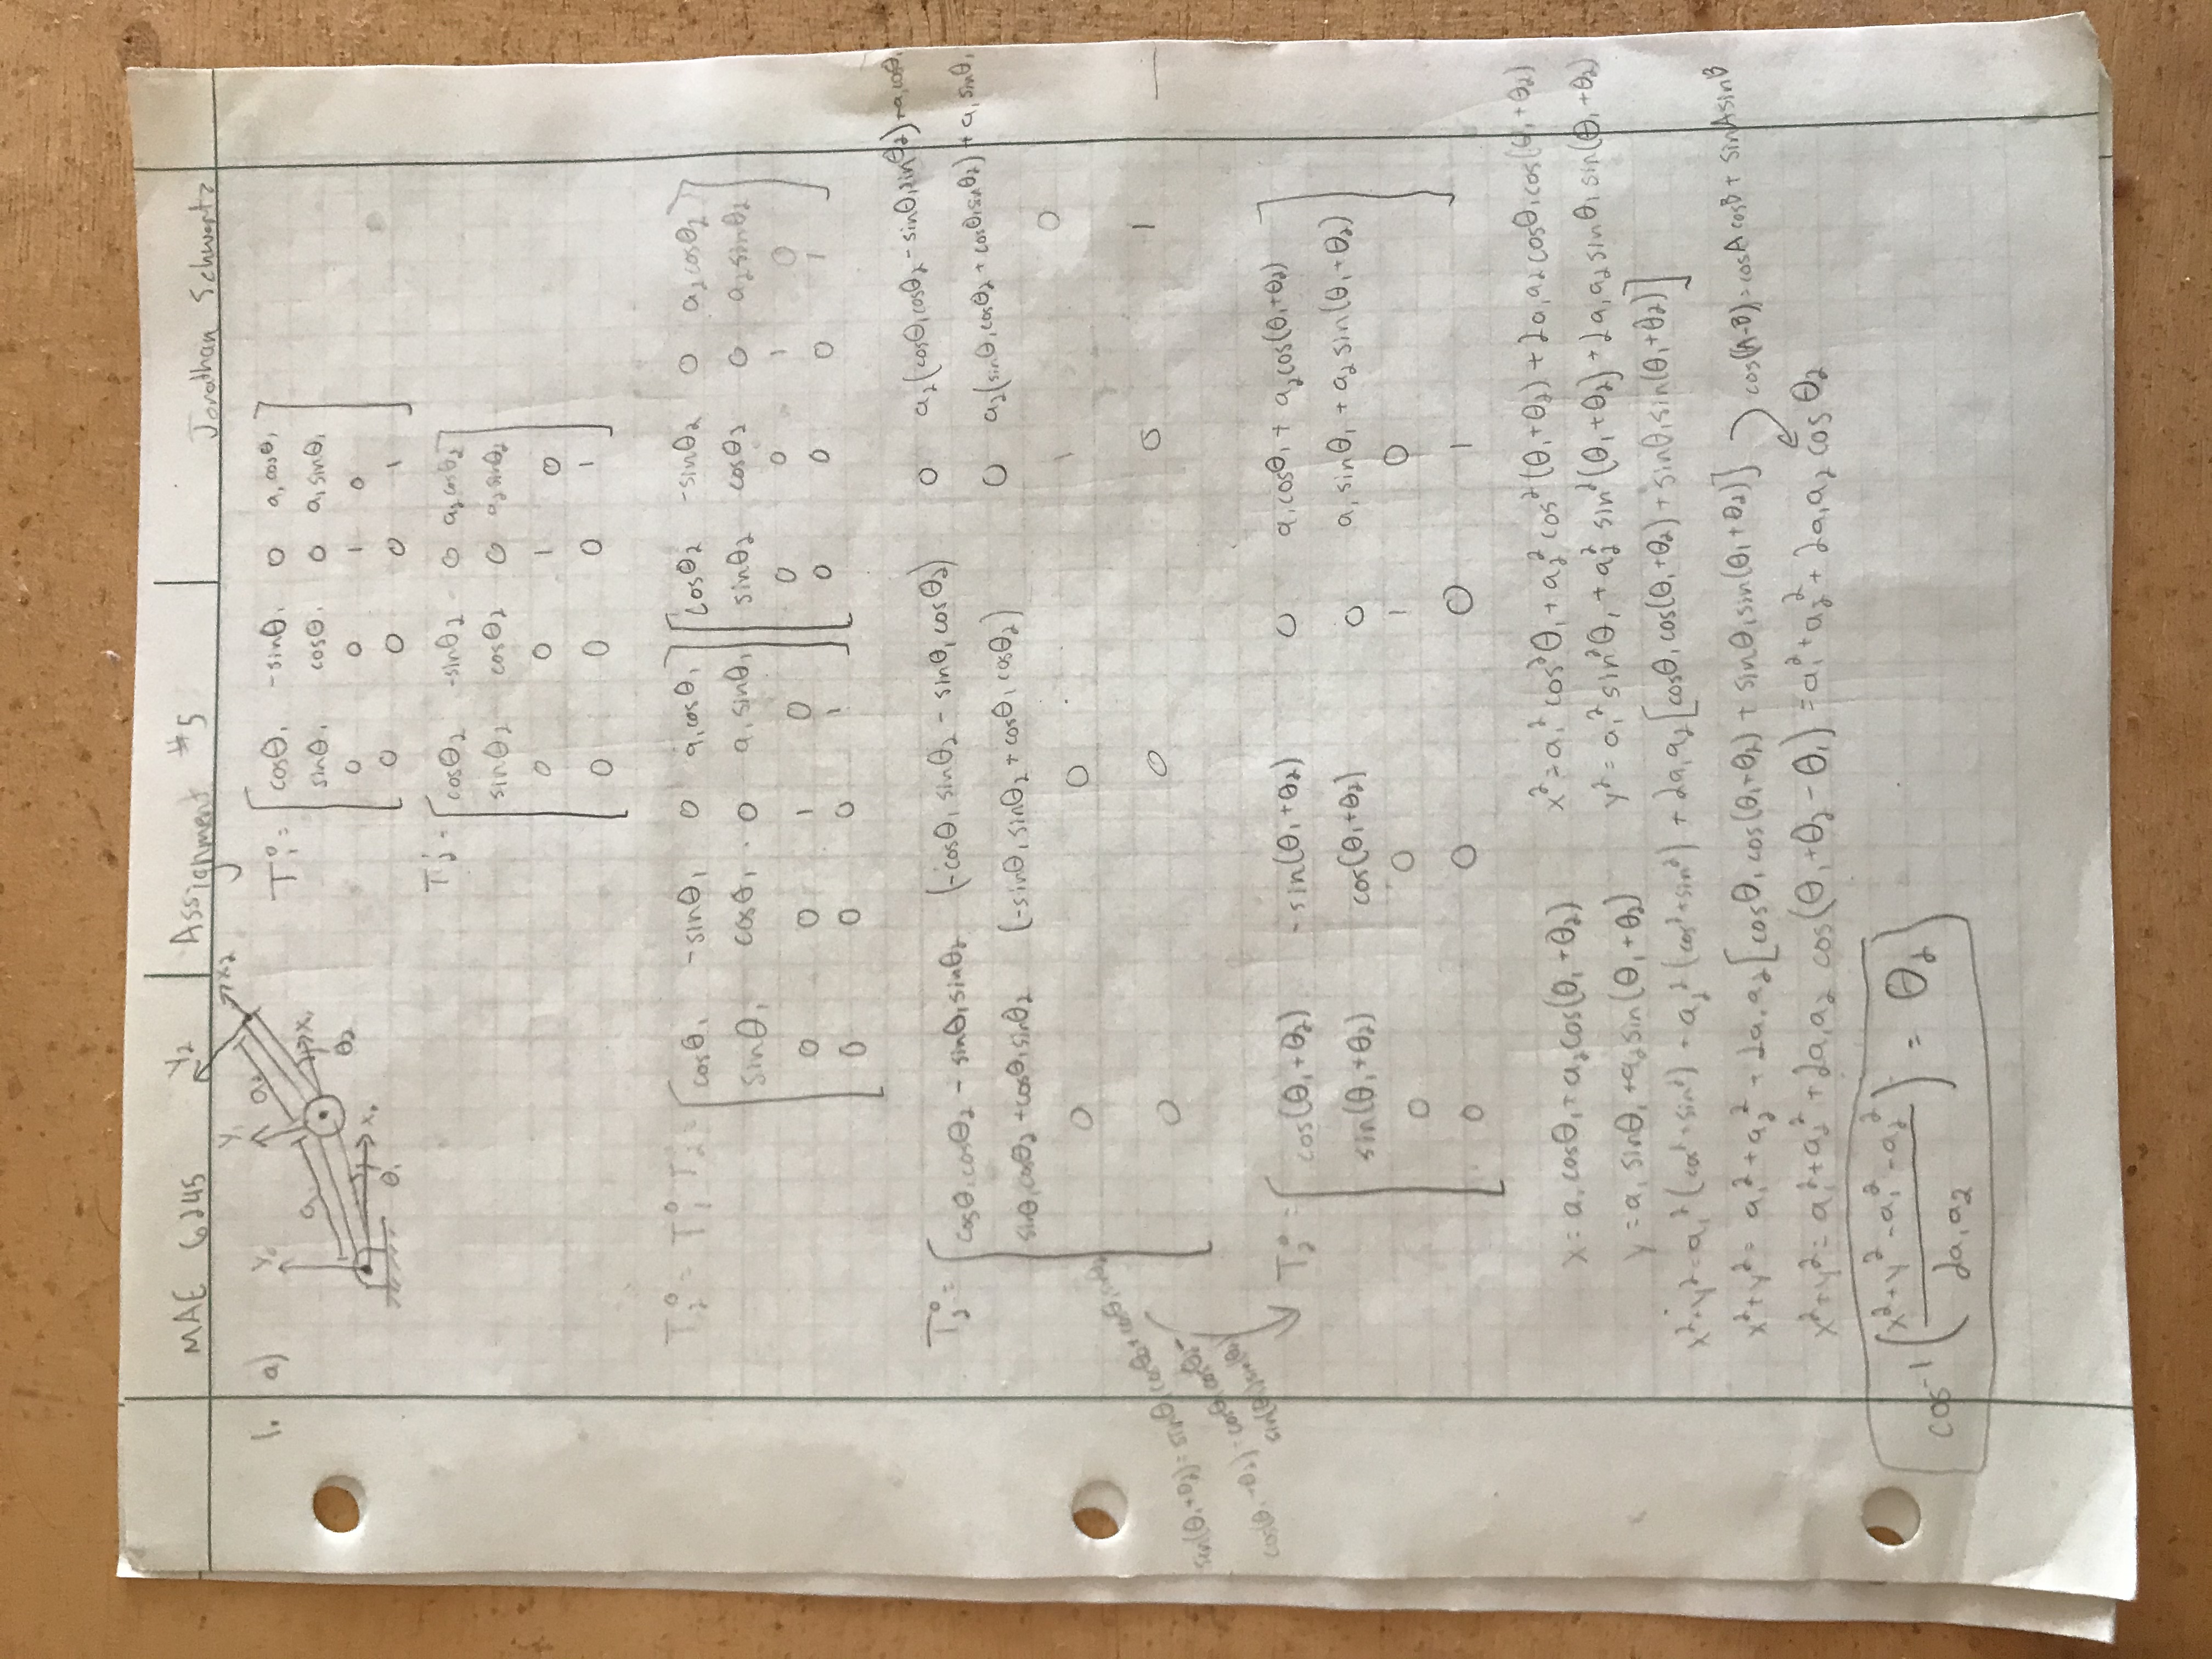 MAE 6245 Assignment #5 Jonathan Schwartz
1. a)
Y₀ a₁ Y₁ a₂ Y₂ X₂ X₁ θ₂ X₀ θ₁
T₁⁰ = [ cosθ₁ -sinθ₁ 0 a₁cosθ₁
sinθ₁ cosθ₁ 0 a₁sinθ₁
0 0 1 0
0 0 0 1 ]
T₂¹ = [ cosθ₂ -sinθ₂ 0 a₂cosθ₂
sinθ₂ cosθ₂ 0 a₂sinθ₂
0 0 1 0
0 0 0 1 ]
T₂⁰ = T₁⁰ T₂¹ = [ cosθ₁ -sinθ₁ 0 a₁cosθ₁ ] [ cosθ₂ -sinθ₂ 0 a₂cosθ₂ ]
sinθ₁ cosθ₁ 0 a₁sinθ₁ sinθ₂ cosθ₂ 0 a₂sinθ₂
0 0 1 0 0 0 1 0
0 0 0 1 0 0 0 1
T₂⁰ = [ cosθ₁cosθ₂ - sinθ₁sinθ₂ (-cosθ₁sinθ₂ - sinθ₁cosθ₂) 0 a₂(cosθ₁cosθ₂ - sinθ₁sinθ₂) + a₁cosθ₁
sinθ₁cosθ₂ + cosθ₁sinθ₂ (-sinθ₁sinθ₂ + cosθ₁cosθ₂) 0 a₂(sinθ₁cosθ₂ + cosθ₁sinθ₂) + a₁sinθ₁
0 0 1 0
0 0 0 1
sin(θ₁+θ₂) = sinθ₁cosθ₂ + cosθ₁sinθ₂
cos(θ₁+θ₂) = cosθ₁cosθ₂ -
sin(θ₁)sin(θ₂)
T₂⁰ = [ cos(θ₁+θ₂) -sin(θ₁+θ₂) 0 a₁cosθ₁ + a₂cos(θ₁+θ₂)
sin(θ₁+θ₂) cos(θ₁+θ₂) 0 a₁sinθ₁ + a₂sin(θ₁+θ₂)
0 0 1 0
0 0 0 1 ]
x = a₁cosθ₁ + a₂cos(θ₁+θ₂) x² = a₁²cos²θ₁ + a₂²cos²(θ₁+θ₂) + 2a₁a₂cosθ₁cos(θ₁+θ₂)
y = a₁sinθ₁ + a₂sin(θ₁+θ₂) y² = a₁²sin²θ₁ + a₂²sin²(θ₁+θ₂) + 2a₁a₂sinθ₁sin(θ₁+θ₂)
x²+y² = a₁²(cos²+sin²) + a₂²(cos²+sin²) + 2a₁a₂[cosθ₁cos(θ₁+θ₂) + sinθ₁sin(θ₁+θ₂)]
x²+y² = a₁²+a₂² + 2a₁a₂[cosθ₁cos(θ₁+θ₂) + sinθ₁sin(θ₁+θ₂)] cos(A-B) = cosAcosB + sinAsinB
x²+y² = a₁²+a₂² + 2a₁a₂ cos(θ₁+θ₂-θ₁) = a₁²+a₂² + 2a₁a₂cosθ₂
cos⁻¹( (x²+y²-a₁²-a₂²) / 2a₁a₂ ) = θ₂